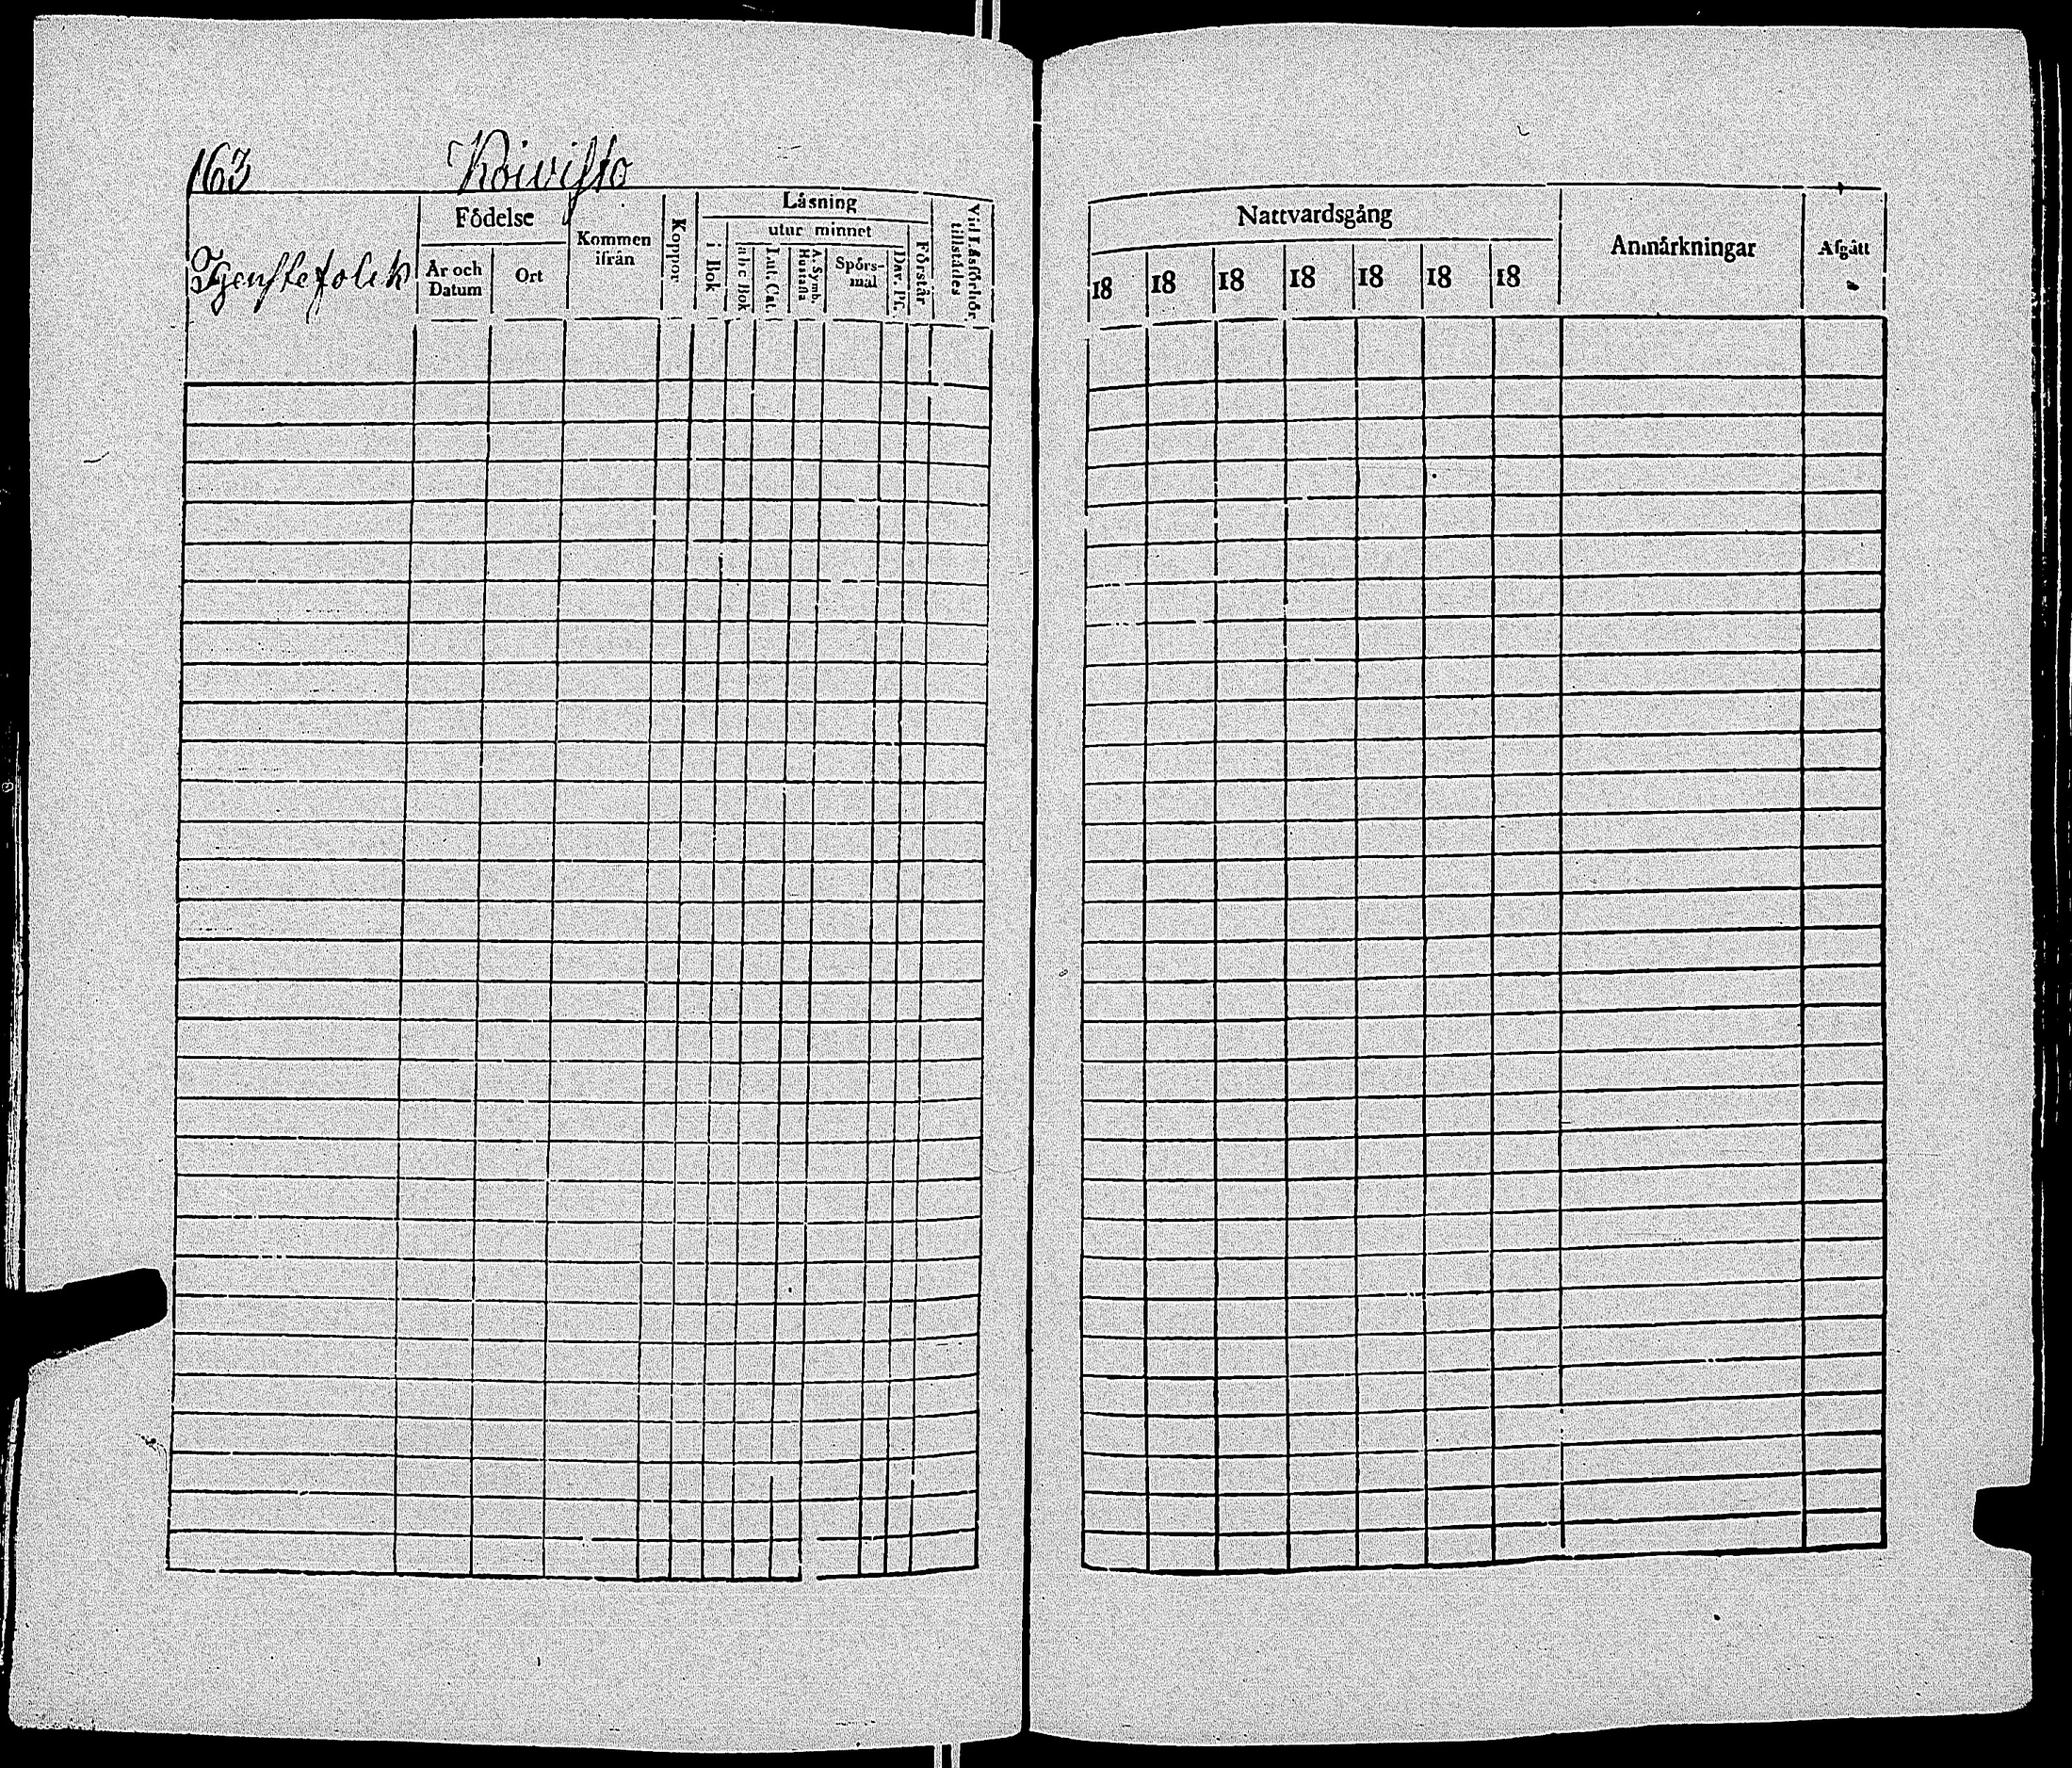 163 Koivisto
Tjenstefolck
Födelse
År och Datum
Ort
Kommen ifrån
Koppor
Läsning
i Bok
utur minnet
a b c Bok
Lut. Cat.
A. Symb. Hustafla
Spörsmål
Dav. Ps.
Förstår
Vid Läsförhör tillstädes
Nattvardsgång
18 18 18 18 18 18 18
Anmärkningar
Afgått